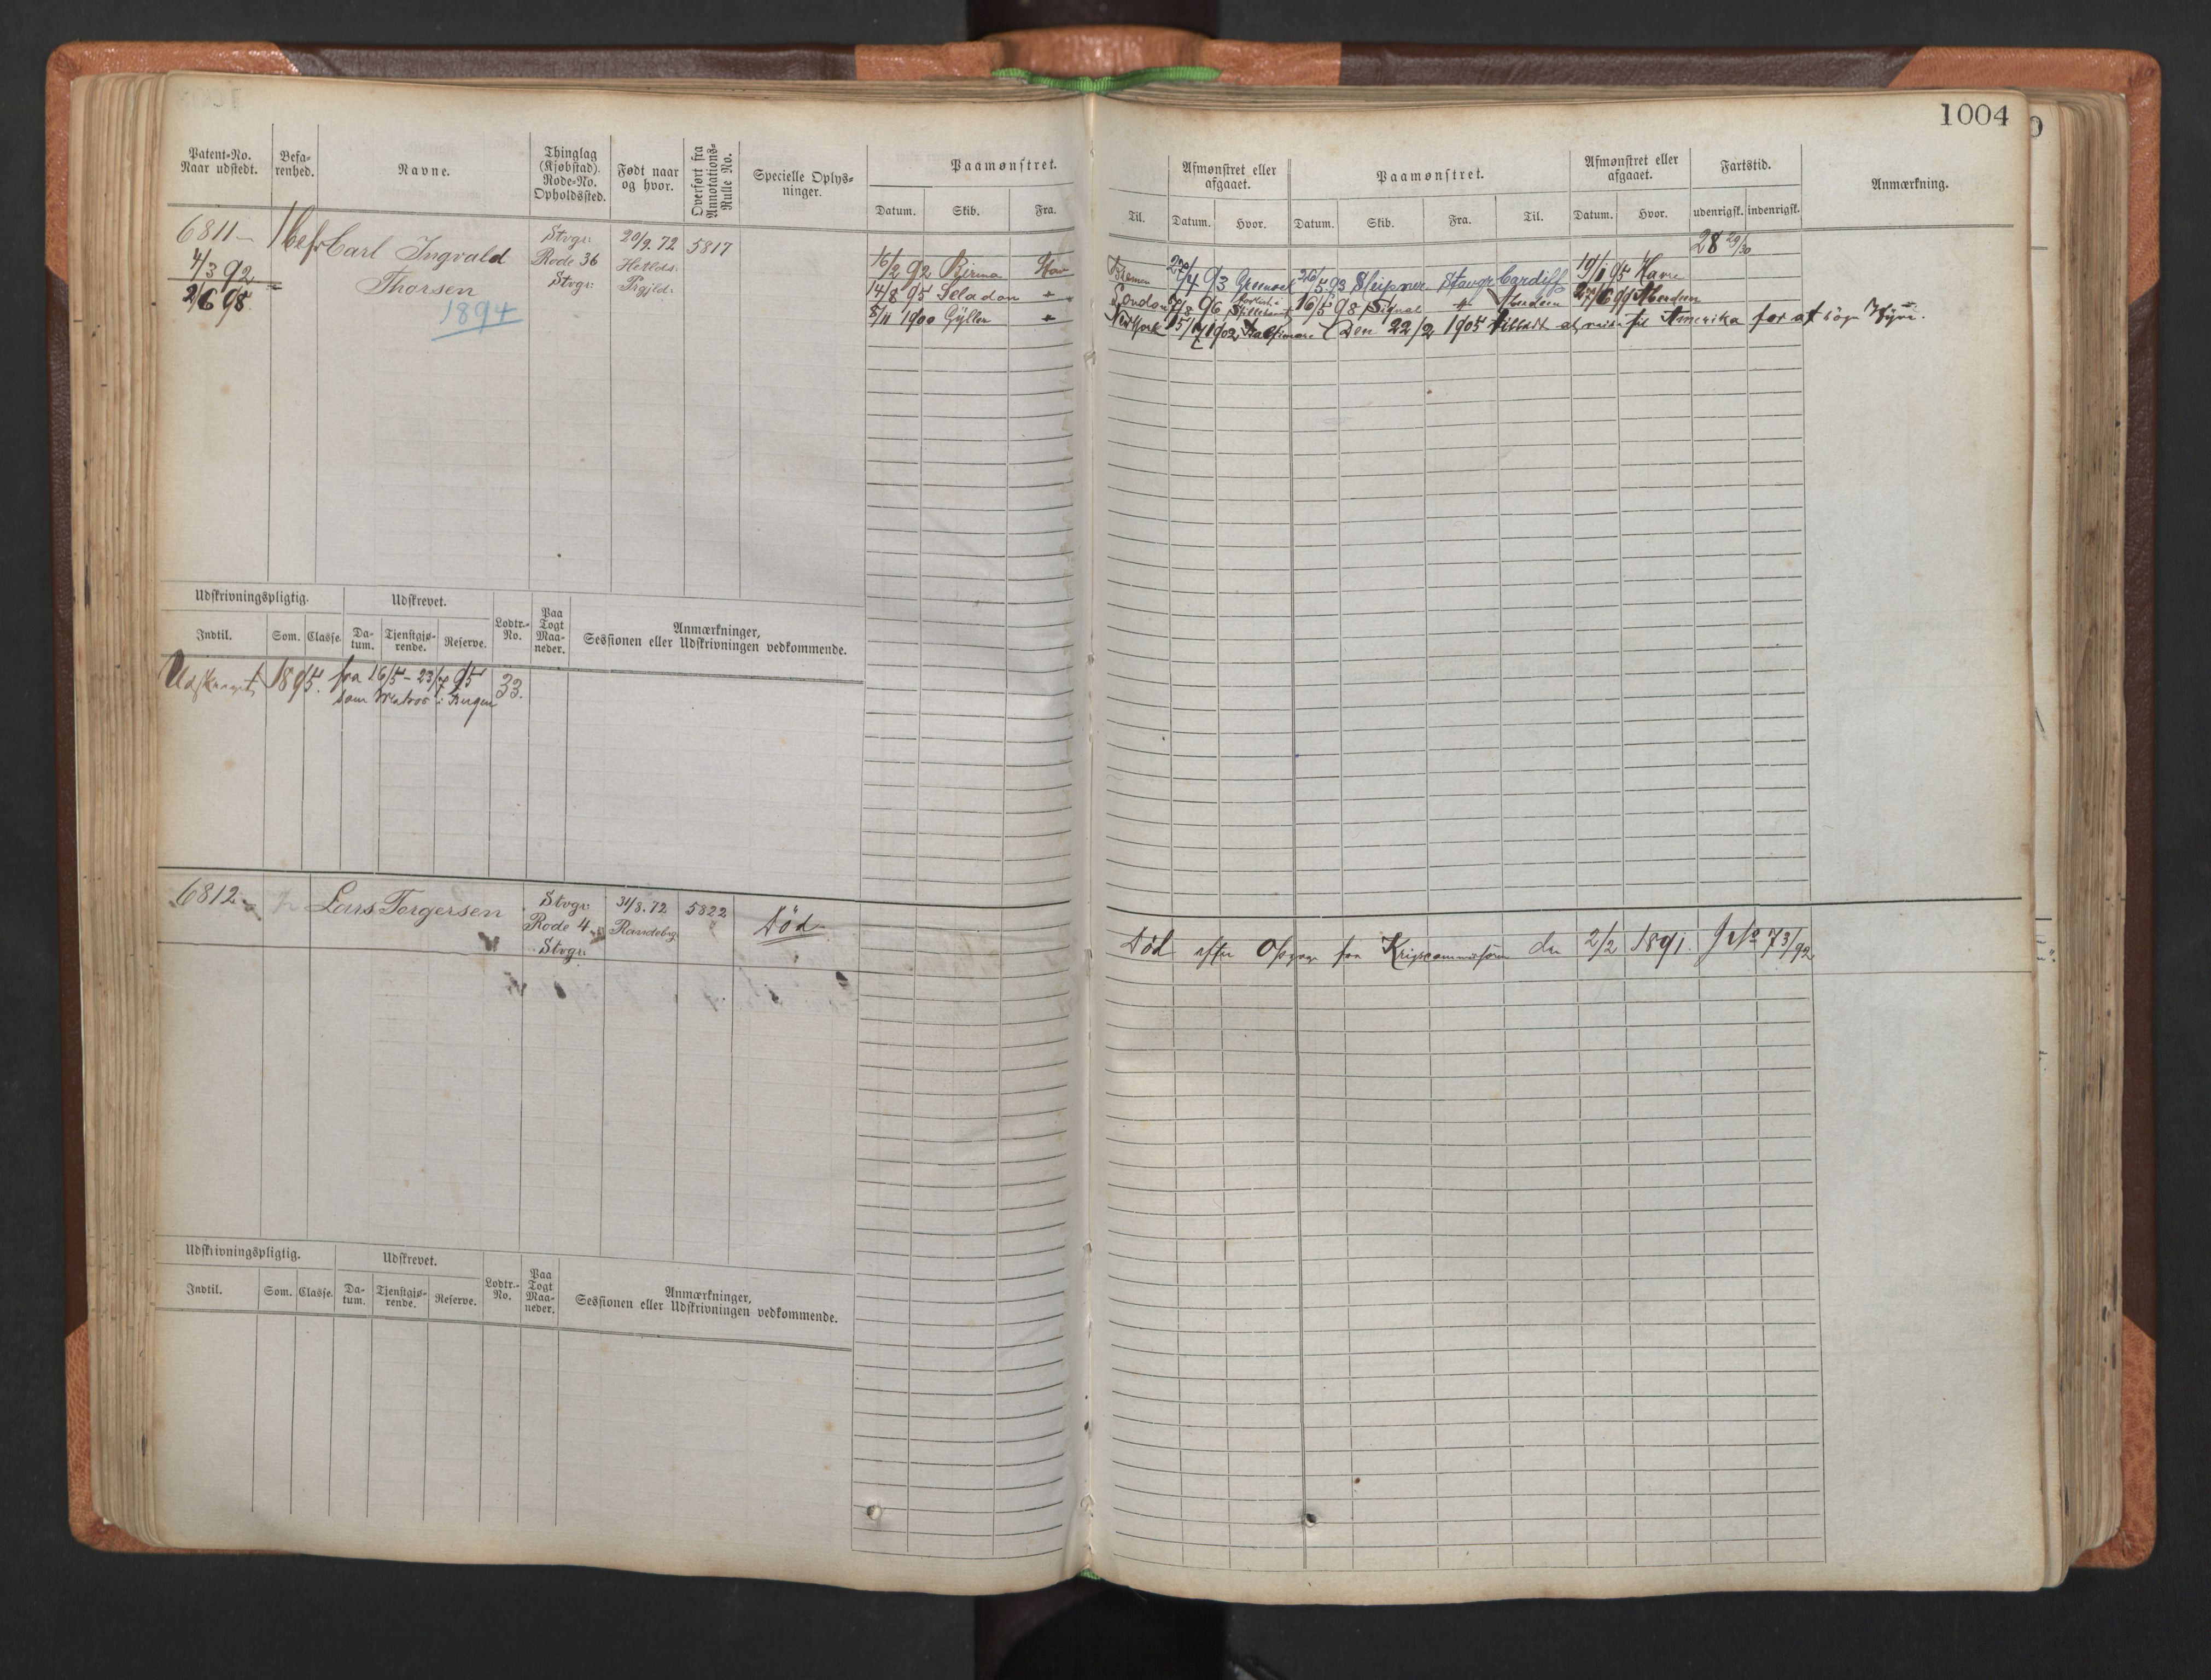 1004
Patent-No. Naar udstedt.
Befarenhed.
Navne.
Thinglag (Kjøbstad). Rode-No. Opholdssted.
Født naar og hvor.
Overført fra Annotations-Rulle No.
Specielle Oplysninger.
Paamønstret.
Datum. Skib. Fra.
Til.
Afmønstret eller afgaaet.
Datum. Hvor.
Paamønstret.
Datum. Skib. Fra. Til.
Afmønstret eller afgaaet.
Datum. Hvor.
Fartstid.
udenrigsk. indenrigsk.
Anmærkning.
6811
4/3 92
2/6 98.
1 bef.
Carl Ingvald
Thorsen
1894
Stvgr:
Rode 36
Stvgr:
20/9. 72
Hetlds.
Prgjld.
5817
28 29/30
16/2 92 Birma Stav
Bremen /4 93 Greenock 26/5 93 Sleipner Stavgr Cardiff 19/1 95 Havre
14/8 95 Seladon
London /8 96 16/5 98 Signal Aberdeen Aberdeen
5/11 1900 Gyller
New York 15/ 1902 Baltimore (Den 22/2 1905 tilladt at reise til Amerika for at söge Hyre.
Udskrivningspligtig.
Udskrevet.
Indtil. Som. Classe. Datum. Tjenstgjørende. Reserve.
Lodtr.-No.
Paa Togt Maaneder.
Anmærkninger,
Sessionen eller Udskrivningen vedkommende.
Udskrevet 1895. fra 16/5 - 23/7 95 33.
som Matros i Bergen
6812
Lars Torgersen
Stvgr:
Rode 4
Stvgr:
31/8. 72
Randebrg.
5822
Död
Död efter Opgave fra Krigscommissæren den 2/2 1891. J No 73/92
Udskrivningspligtig.
Udskrevet.
Indtil. Som. Classe. Datum. Tjenstgjørende. Reserve.
Lodtr.-No.
Paa Togt Maaneder.
Anmærkninger,
Sessionen eller Udskrivningen vedkommende.